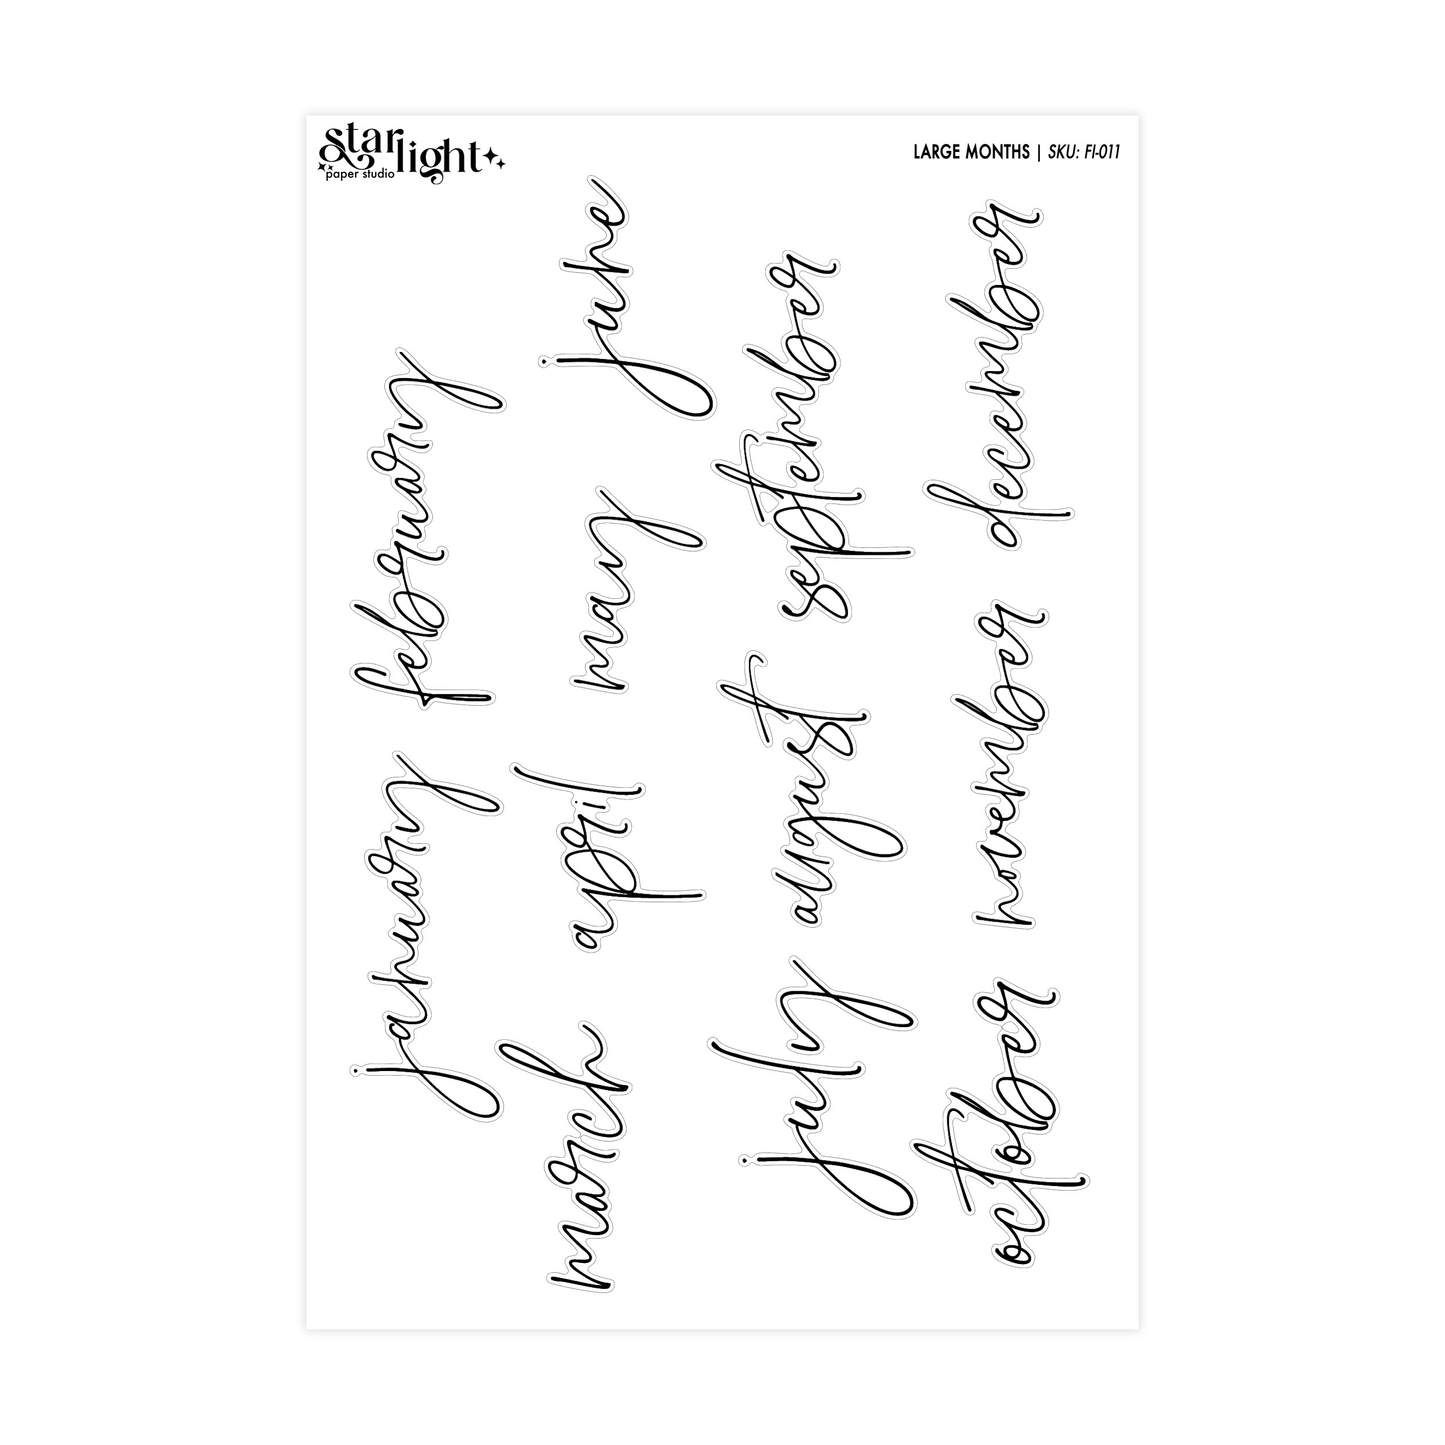 starlight
paper studio
LARGE MONTHS | SKU: FI-011
january february
march april may june
july august september
october november december